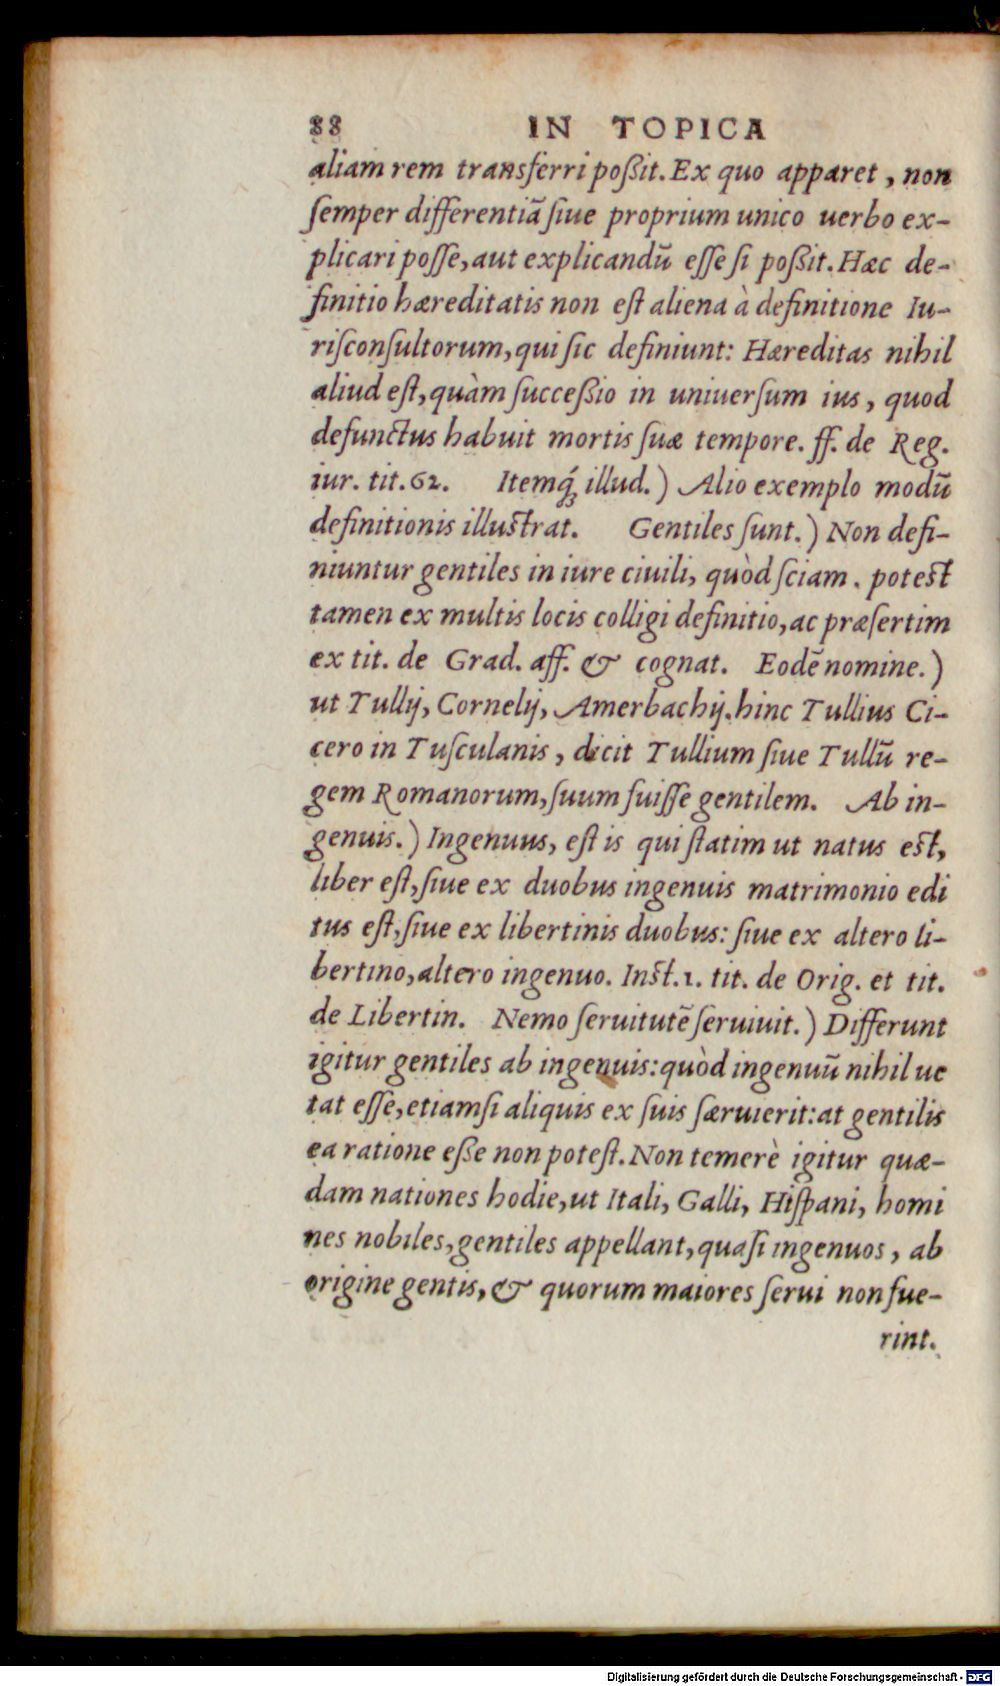 88 IN TOPICA
aliam rem transferri poßit. Ex quo apparet, non
ſemper differentiã ſiue proprium unico uerbo ex-
plicari poſſe, aut explicandũ eſſe ſi poßit. Hæc de-
finitio hæreditatis non eſt aliena à definitione Iu-
riſconſultorum, qui ſic definiunt: Hæreditas nihil
aliud eſt, quàm ſucceßio in uniuerſum ius, quod
defunctus habuit mortis ſuæ tempore. ff. de Reg.
iur. tit. 62. Itemq́ꝫ illud.) Alio exemplo modũ
definitionis illustrat. Gentiles ſunt.) Non defi-
niuntur gentiles in iure ciuili, quòd ſciam. potest
tamen ex multis locis colligi definitio, ac præſertim
ex tit. de Grad. aff. & cognat. Eodẽ nomine.)
ut Tullij, Cornelij, Amerbachij. hinc Tullius Ci-
cero in Tuſculanis, dicit Tullium ſiue Tullũ re-
gem Romanorum, ſuum fuiſſe gentilem. Ab in-
genuis.) Ingenuus, eſt is qui ſtatim ut natus est,
liber eſt, ſiue ex duobus ingenuis matrimonio edi
tus eſt, ſiue ex libertinis duobus: ſiue ex altero li-
bertino, altero ingenuo. Inst. 1. tit. de Orig. et tit.
de Libertin. Nemo ſeruitutẽ ſeruiuit.) Differunt
igitur gentiles ab ingenuis: quòd ingenuũ nihil ue
tat eſſe, etiamſi aliquis ex ſuis ſæruierit: at gentilis
ea ratione eße non poteſt. Non temerè igitur quæ-
dam nationes hodie, ut Itali, Galli, Hiſpani, homi
nes nobiles, gentiles appellant, quaſi ingenuos, ab
origine gentis, & quorum maiores ſerui non fue-
rint.
Digitalisierung gefördert durch die Deutsche Forschungsgemeinschaft - DFG